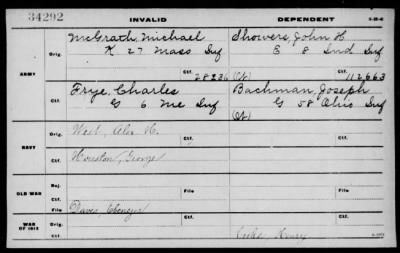 34292
INVALID DEPENDENT
3-28-8
McGrath, Michael Showers, John H
Orig. K 27 Mass Inf E 8 Ind Inf
ARMY
28236 (Ct) 112663
Frye, Charles Bachman, Joseph
Ctf. G 6 Me Inf G 58 Ohio Inf
(Ct)
West, Alex H.
Orig. Ctf.
NAVY
Houston, George
Ctf. Ctf.
OLD WAR
Rej. File File
Ctf.
Davis, Ebenezer
WAR OF 1812
Orig. File
Ctf. Ctf.
Henry